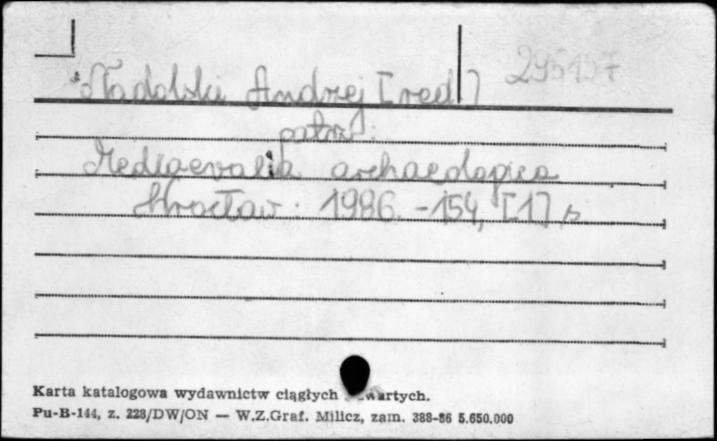 Nadolski Andrzej [red] 295157
patrz:
Mediaevalia archaeologica
Wrocław: 1986. - 154, [1] s
Karta katalogowa wydawnictw ciągłych wartych.
Pu-B-144, z. 228/DW/ON — W.Z.Graf. Milicz, zam. 388-86 5.650.000